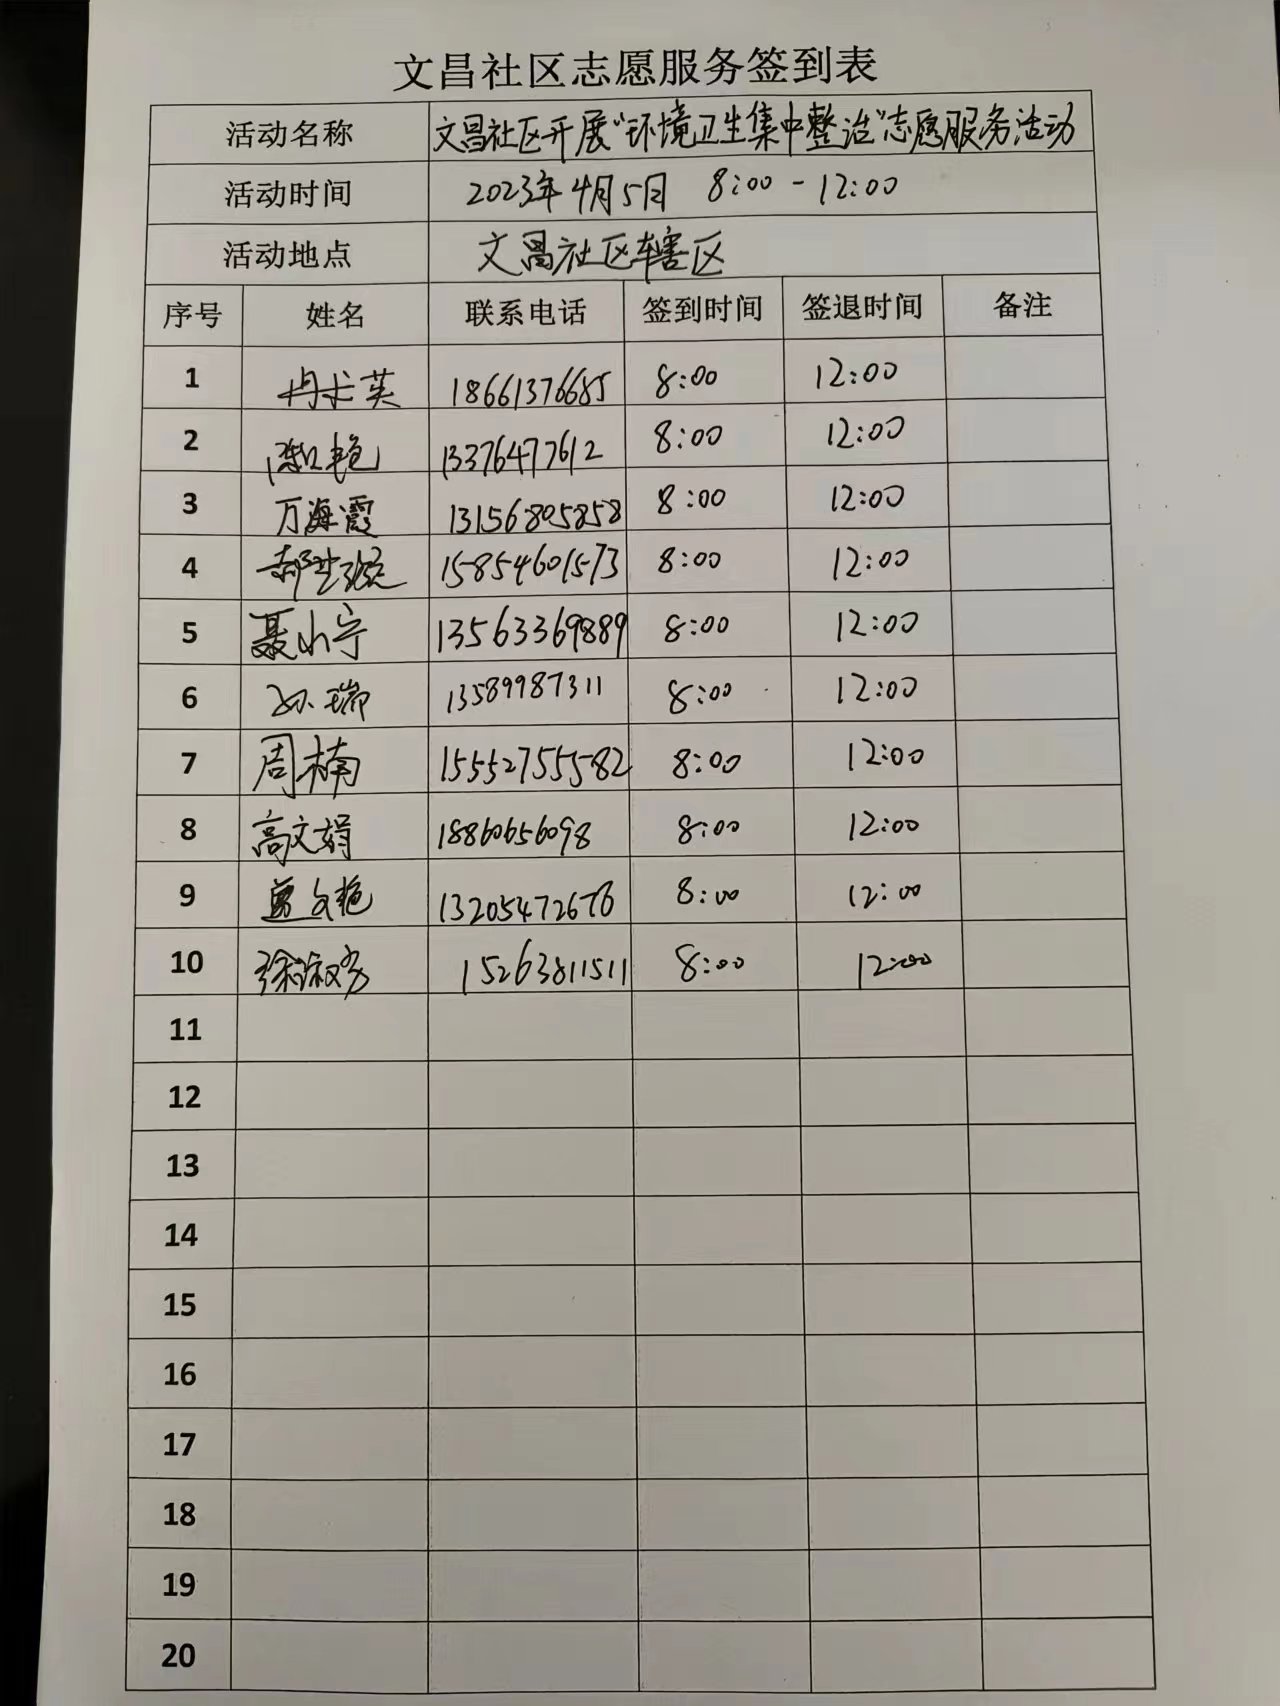 文昌社区志愿服务签到表
活动名称 文昌社区开展“环境卫生集中整治”志愿服务活动
活动时间 2023年4月5日 8:00-12:00
活动地点 文昌社区辖区
序号 姓名 联系电话 签到时间 签退时间 备注
1 18661376685 8:00 12:00
2 13376477612 8:00 12:00
3 万海霞 13156805858 8:00 12:00
4 15854601573 8:00 12:00
5 聂小宁 13563369889 8:00 12:00
6 孙瑞 13589987311 8:00 12:00
7 周楠 15552755582 8:00 12:00
8 高文娟 18860656098 8:00 12:00
9 文艳 8:00 12:00
10 徐淑 15263811511 8:00 12:00
11
12
13
14
15
16
17
18
19
20